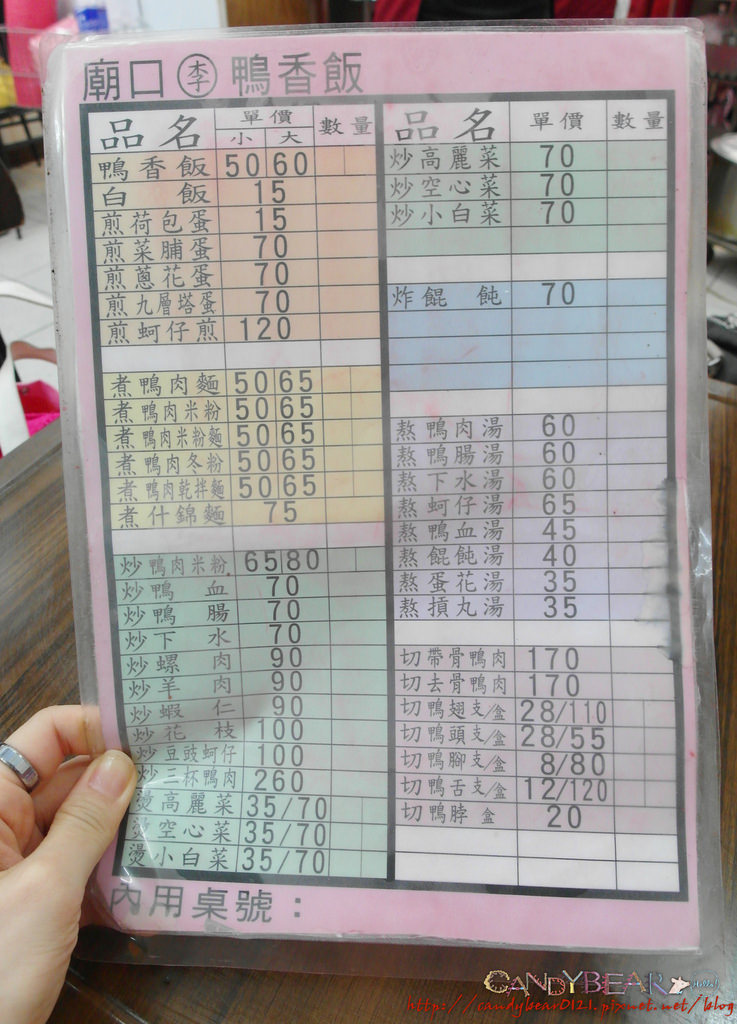 廟口 李 鴨香飯
品名 單價 數量
小 大
鴨香飯 50 60
白飯 15
煎荷包蛋 15
煎菜脯蛋 70
煎蔥花蛋 70
煎九層塔蛋 70
煎蚵仔煎 120
煮鴨肉麵 50 65
煮鴨肉米粉 50 65
煮鴨肉米粉麵 50 65
煮鴨肉冬粉 50 65
煮鴨肉乾拌麵 50 65
煮什錦麵 75
炒鴨肉米粉 65 80
炒鴨血 70
炒鴨腸 70
炒下水 70
炒螺肉 90
炒羊肉 90
炒蝦仁 90
炒花枝 100
炒豆豉蚵仔 100
炒三杯鴨肉 260
燙高麗菜 35/70
燙空心菜 35/70
燙小白菜 35/70
品名 單價 數量
炒高麗菜 70
炒空心菜 70
炒小白菜 70
炸餛飩 70
熬鴨肉湯 60
熬鴨腸湯 60
熬下水湯 60
熬蚵仔湯 65
熬鴨血湯 45
熬餛飩湯 40
熬蛋花湯 35
熬摃丸湯 35
切帶骨鴨肉 170
切去骨鴨肉 170
切鴨翅支/盒 28/110
切鴨頭支/盒 28/55
切鴨腳支/盒 8/80
切鴨舌支/盒 12/120
切鴨脖 盒 20
內用桌號：
CANDYBEAR
http://candybear0121.pixnet.net/blog